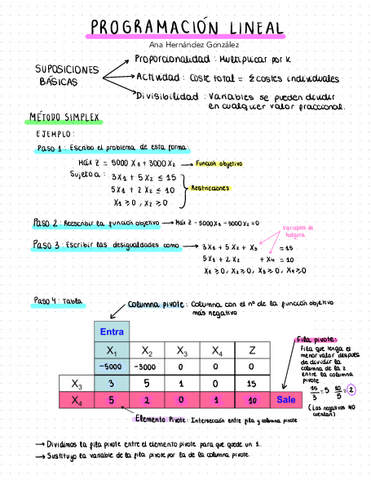 PROGRAMACIÓN LINEAL
Ana Hernández González
SUPOSICIONES BÁSICAS
Proporcionalidad: Multiplicar por K
Actividad: Coste total = Σ costes individuales
Divisibilidad: Variables se pueden dividir
en cualquier valor fraccional.
MÉTODO SIMPLEX
EJEMPLO:
Paso 1: Escribo el problema de esta forma:
Máx Z = 5000 X1 + 3000 X2 → Función objetivo
Sujeto a: 3X1 + 5X2 ≤ 15
5X1 + 2X2 ≤ 10 → Restricciones
X1 ≥ 0, X2 ≥ 0
Paso 2: Reescribir la función objetivo → Máx Z - 5000X1 - 3000X2 = 0
Variables de holgura
Paso 3: Escribir las desigualdades como → 3X1 + 5X2 + X3 = 15
5X1 + 2X2 + X4 = 10
X1 ≥ 0, X2 ≥ 0, X3 ≥ 0, X4 ≥ 0
Paso 4: Tabla
Columna pivote: Columna con el nº de la función objetivo
más negativo
Entra
X1 X2 X3 X4 Z
-5000 -3000 0 0 0
X3 3 5 1 0 15
X4 5 2 0 1 10 Sale
Fila pivote:
Fila que tenga el
menor valor después
de dividir la
columna de la Z
entre la columna
pivote
15/3 = 5 10/5 = 2
(Los negativos NO
cuentan)
Elemento Pivote: Intersección entre fila y columna pivote
→ Dividimos la fila pivote entre el elemento pivote para que quede un 1.
→ Sustituyo la variable de la fila pivote por la de la columna pivote.